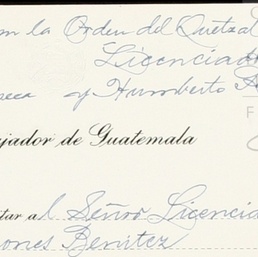 la Orden del Quetzal
Licenciad
y Humberto
F
jador de Guatemala
tar al Señor Licencia
ones Benitez